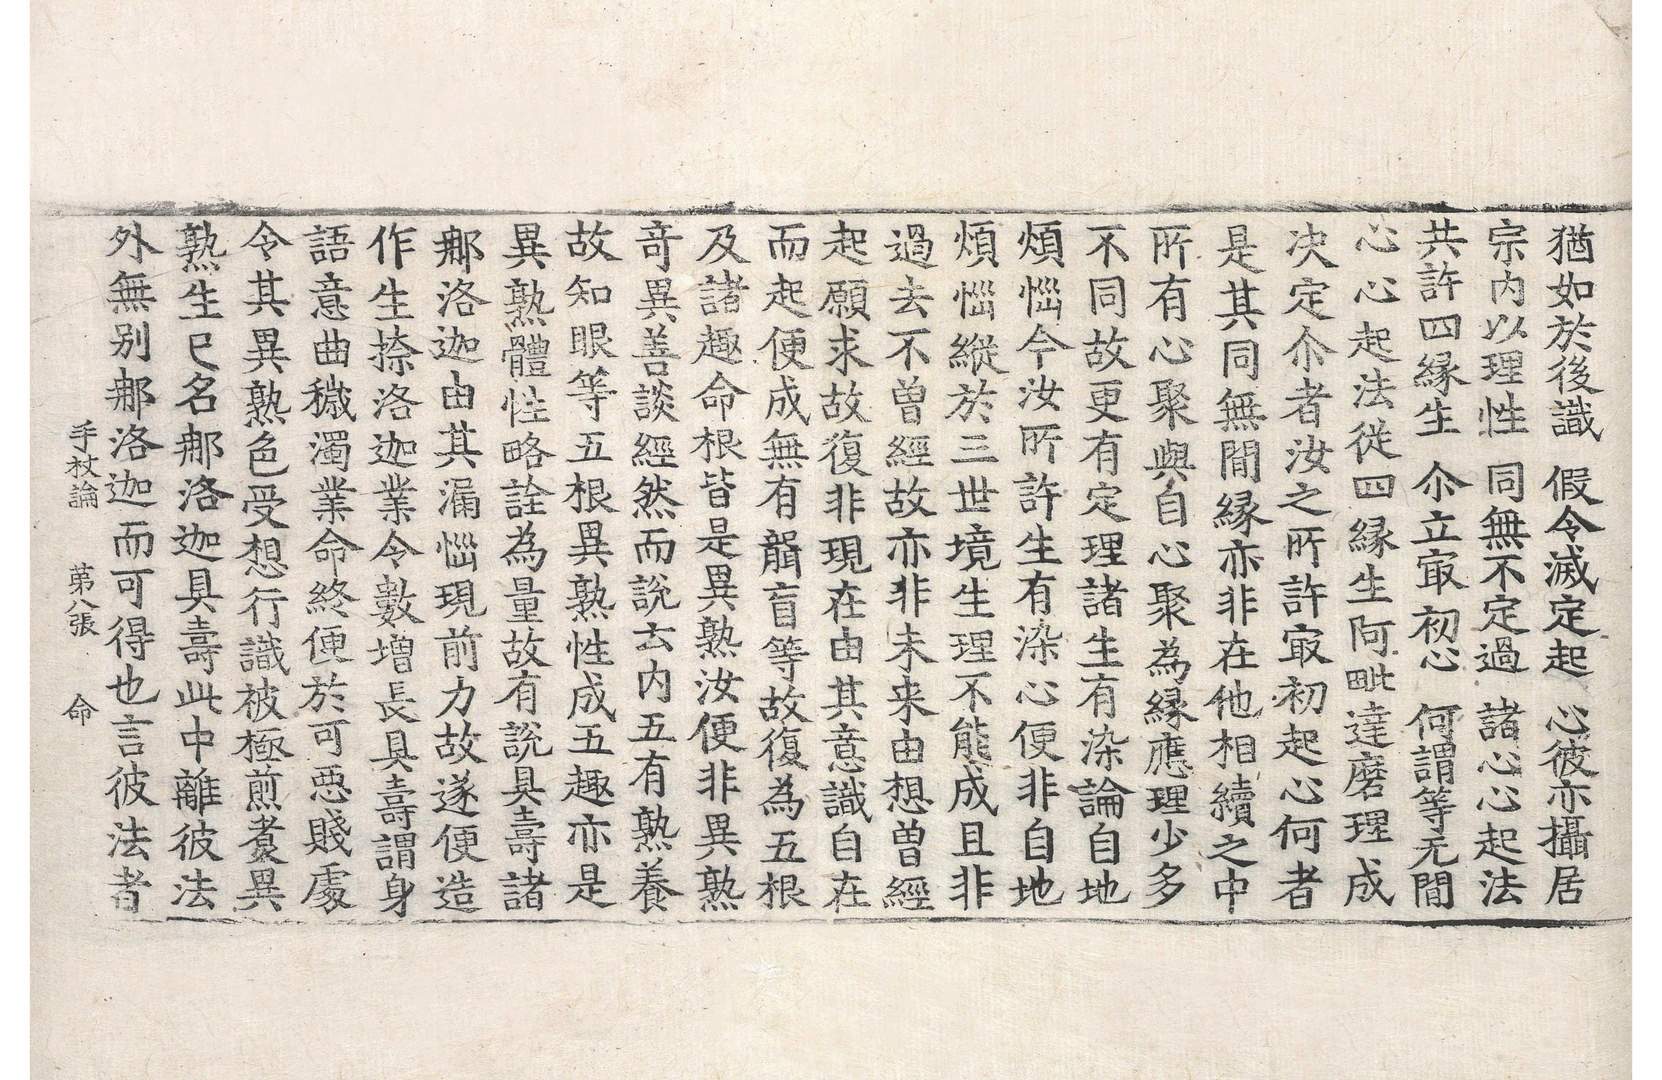 猶如於後識　假令滅定起　心彼亦攝居
宗內以理性　同無不定過　諸心心起法
共許四緣生　尒立㝡初心　何謂等无間
心心起法從四緣生阿毗達磨理成
决定尒者汝之所許㝡初起心何者
是其同無間緣亦非在他相續之中
所有心聚與自心聚為緣應理少多
不同故更有定理諸生有染論自地
煩惱今汝所許生有染心便非自地
煩惱縱於三世境生理不能成且非
過去不曾經故亦非未来由想曾經
起願求故復非現在由其意識自在
而起便成無有聾盲等故復為五根
及諸趣命根皆是異熟汝便非異熟
竒異善談經然而說去內五有熟養
故知眼等五根異熟性成五趣亦是
異熟體性略詮為量故有說具壽諸
那洛迦由其漏惱現前力故遂便造
作生捺洛迦業令數增長具壽謂身
語意曲穢濁業命終便於可惡賤處
令其異熟色受想行識被極煎煑異
熟生已名那洛迦具壽此中離彼法
外無别那洛迦而可得也言彼法者
手杖論　第八張　命